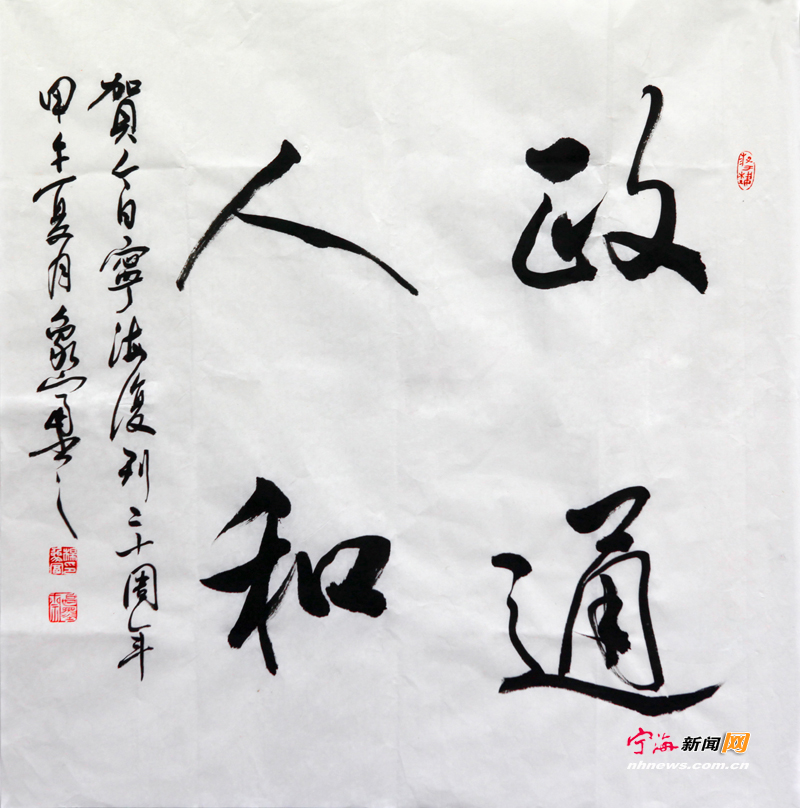 政通
人和
賀今日寧海復刊二十周年
甲午夏月象山勇書之
宁海新闻网
nhnews.com.cn